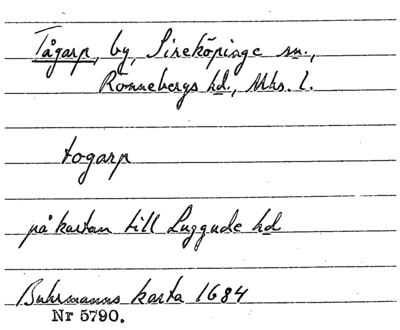 Tågarp, by, Sireköpinge sn.,
Rönnebergs hd., Mhs. l.
togarp
på kartan till Luggude hd
Buhrmanns karta 1684
Nr 5790.